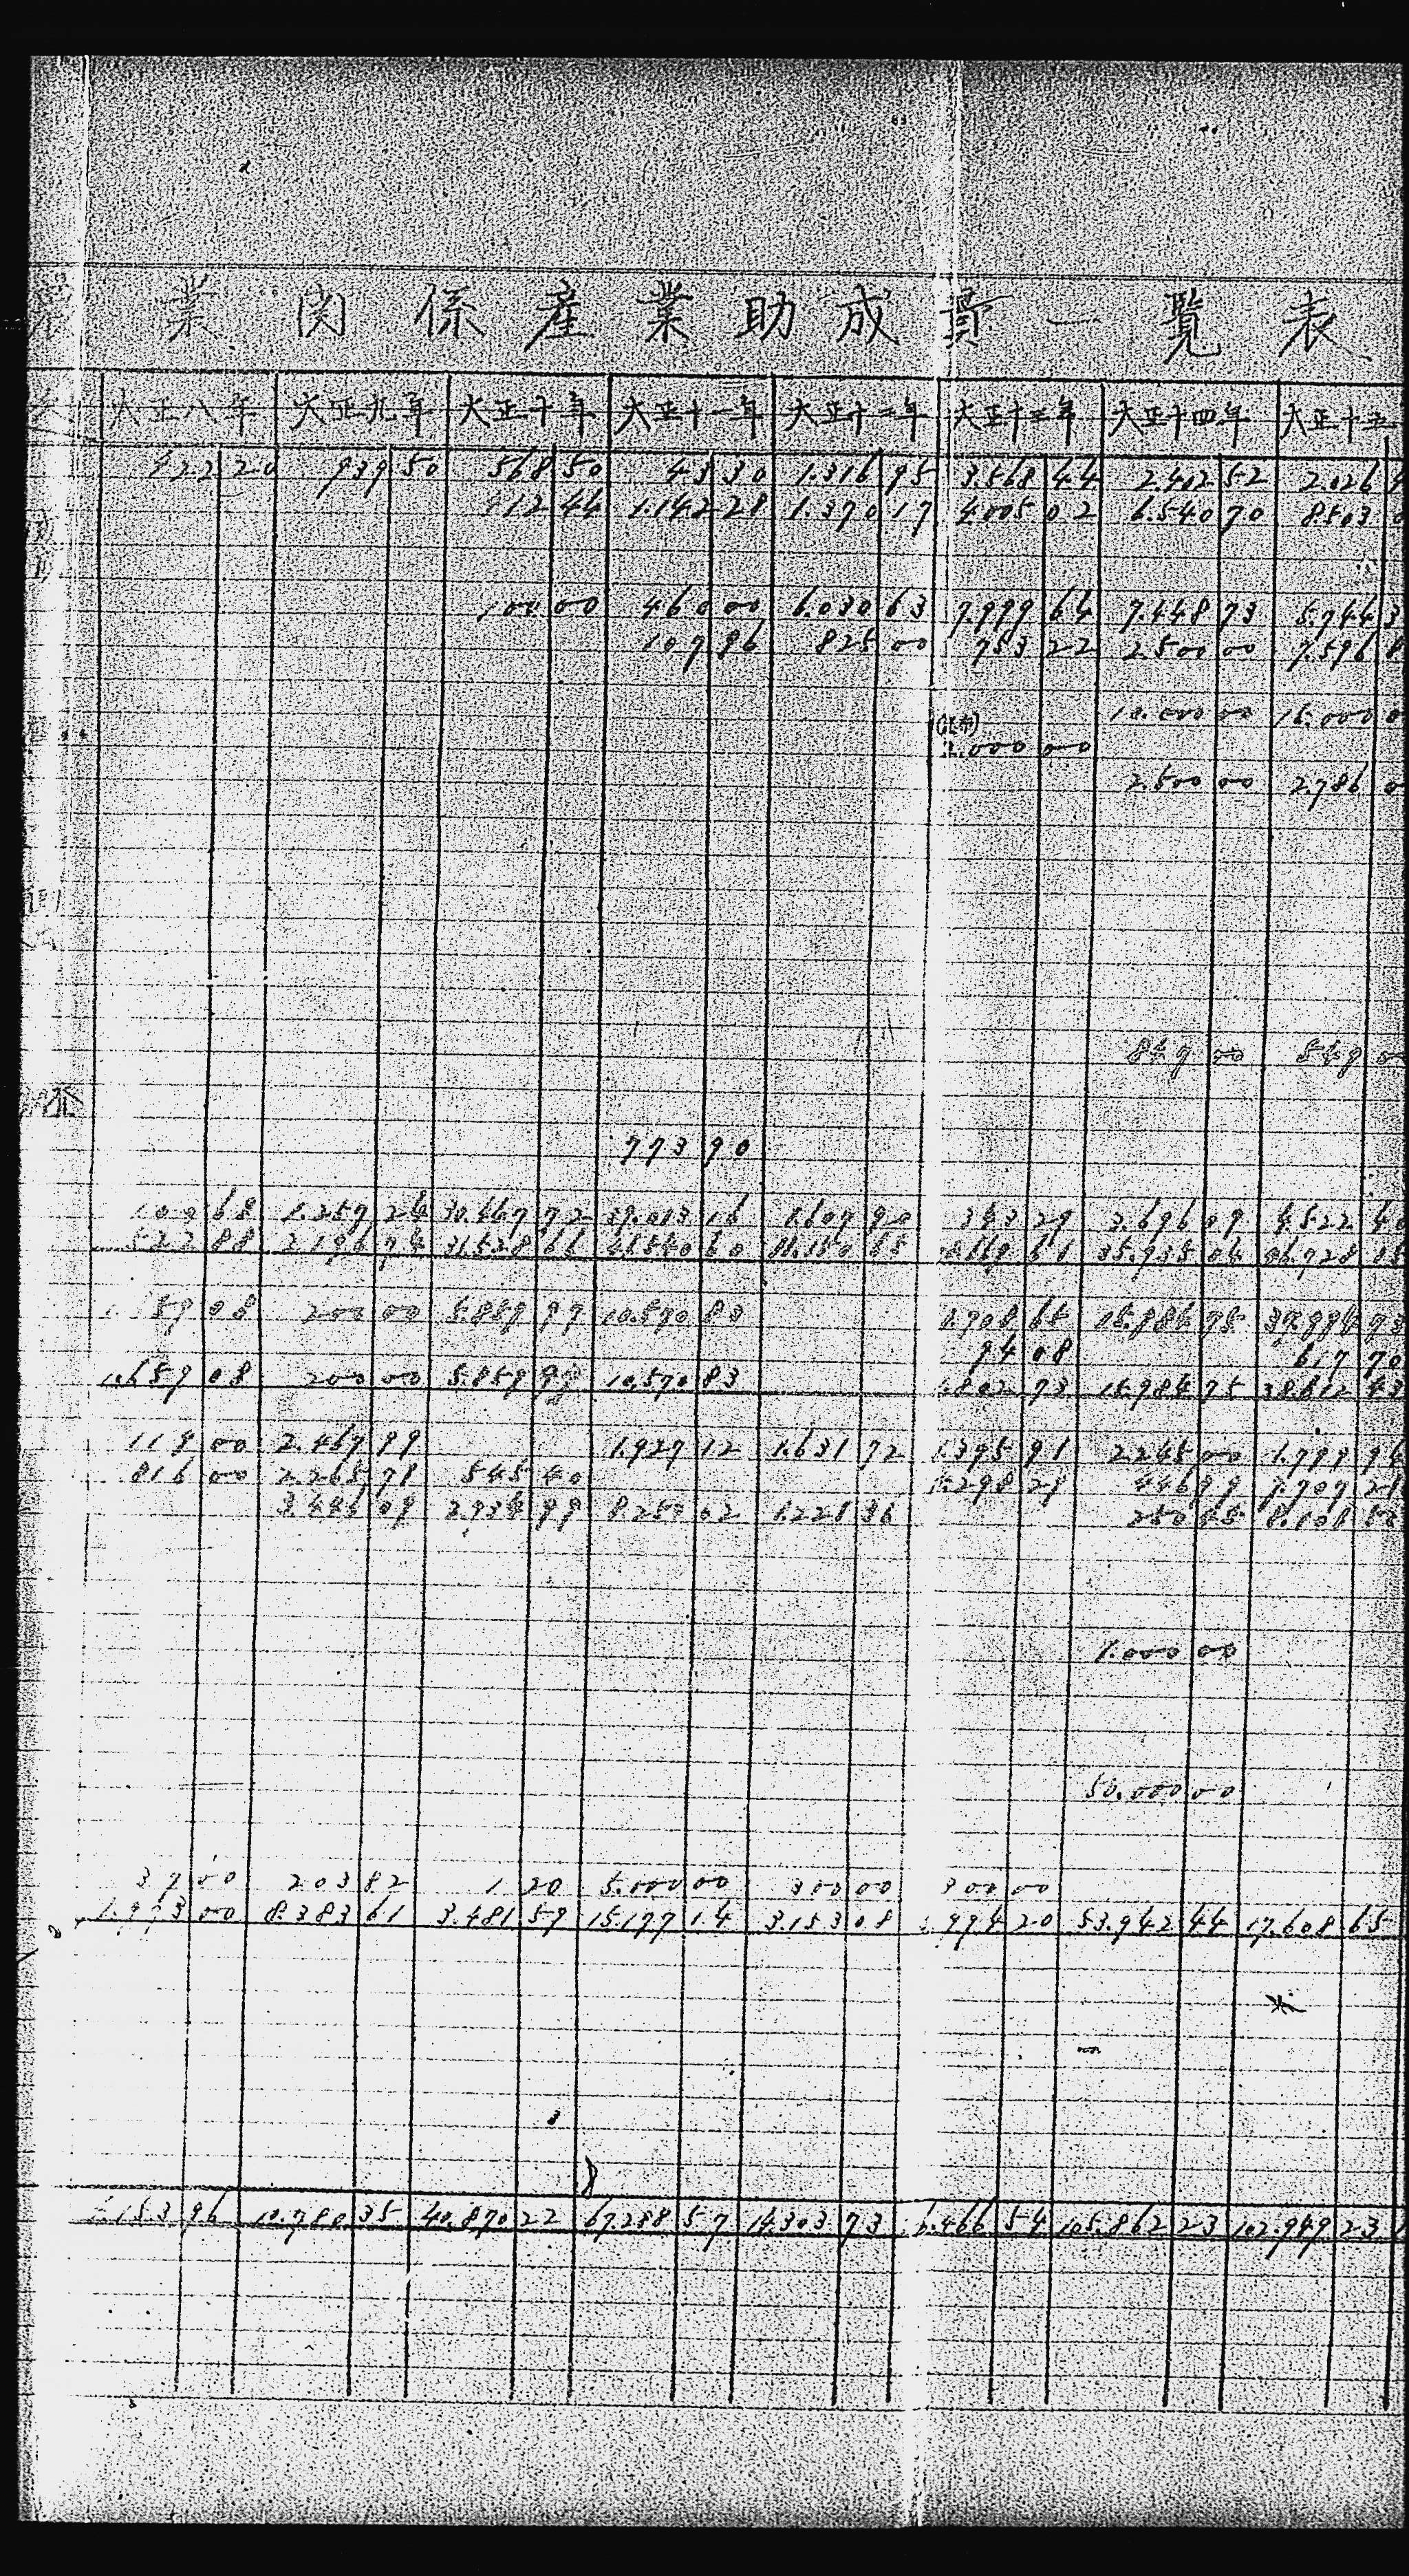 業関係産業助成費一覧表
大正八年 大正九年 大正十年 大正十一年 大正十二年 大正十三年 大正十四年 大正十五
422 20 939 50 568 50 43 30 1.316 95 3.568 44 2.402 52 2.026
512 44 1.142 28 1.370 17 4.005 02 6.540 70 8.503
100 00 460 00 6.030 63 7.999 64 7.448 73 5.744
107 96 825 00 753 22 2.500 00 7.596
10.000 00 16.000
.000 00
2.500 00 2.786
849 00 549
773 90
100 68 1.257 24 30.467 72 39.013 16 1.607 90 343 29 3.696 09 4.522 40
522 88 2.196 74 31.528 66 41.540 60 11.150 65 35.935 04 46.728 05
59 08 200 00 5.859 97 10.570 83 1.708 65 15.984 75 37.994 73
94 08 617 70
1.659 08 200 00 5.859 97 10.570 83 1.802 73 15.984 75 38.612 43
119 00 2.467 99 1.927 12 1.631 72 1.395 91 2.245 00 1.793 94
816 00 2.265 71 545 40 1.298 29 446 99 7.707 21
3.446 09 2.934 99 8.250 02 1.221 36 250 45 8.108 50
1.000 00
50.000 00
37 00 203 82 1 20 5.000 00 300 00 300 00
1.973 00 8.383 61 3.481 59 15.177 14 3.153 08 994 20 53.942 44 17.608 65
4.153 96 10.780 35 40.870 22 67.288 57 14.303 73 6.466 54 105.862 23 102.949 23